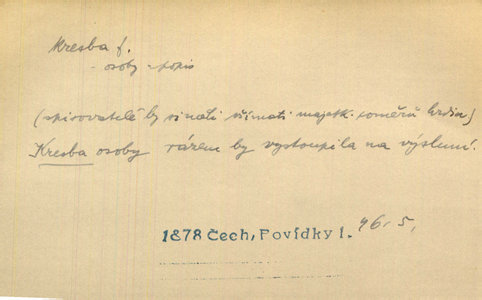 Kresba f.
- osoby = popis
(spisovatelé by si měli všímati majetk. poměrů hrdin)
Kresba osoby rázem by vystoupila na výsluní.
1878 Čech, Povídky 1. 96. 5.